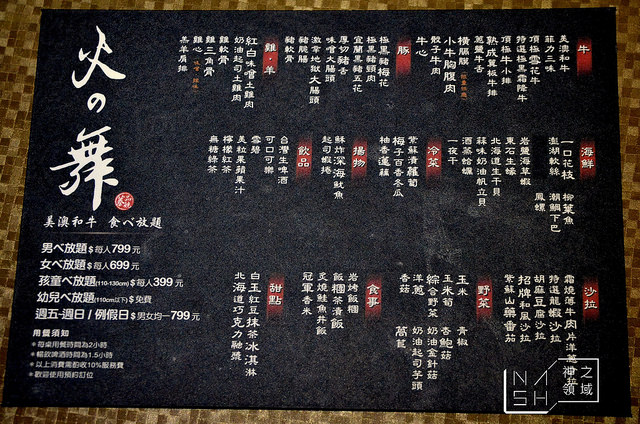 火の舞
美澳和牛 食べ放題
男べ放題$每人799元
女べ放題$每人699元
孩童べ放題(110-130cm)$每人399元
幼兒べ放題(110cm以下)$免費
週五-週日/例假日$男女均一799元
用餐須知
*每桌用餐時間為2小時
*暢飲啤酒時間為1.5小時
*以上消費需酌收10%服務費
*歡迎使用預約訂位
牛
美澳和牛
菲力三味
頂極雪花牛
特選極黑霜降牛
頂極牛小排
熟成翼板牛排
蔥鹽牛舌
橫膈膜
小牛胸腹肉
骰子牛肉
牛心
豚
極黑豬梅花
極黑豬頸肉
宜蘭黑豬五花
厚切豬舌
味噌大腸頭
激辛地獄大腸頭
豬脆腸
豬軟骨
雞．羊
紅白味噌土雞肉
奶油起司土雞肉
雞軟骨
雞三角骨
雞心
羔羊肩排
海鮮
一口花枝 柳葉魚
澎湖軟絲 潮鯛下巴
鳳螺
岩鹽海草蝦
東石生蠔
北海道生干貝
蒜味奶油帆立貝
酒蒸蛤蠣
一夜干
冷菜
紫蘇漬蘿蔔
梅子百香冬瓜
柚香蓮藕
揚物
酥炸深海魷魚
起司蝦捲
飲品
台灣生啤酒
可口可樂
雪碧
美粒果蘋果汁
檸檬紅茶
無糖綠茶
沙拉
霜燒薄牛肉片洋蔥沙拉
特選龍蝦沙拉
胡麻豆腐沙拉
招牌和風沙拉
紫蘇山藥番茄
野菜
玉米 青椒
玉米筍 杏鮑菇
綜合野菜 奶油金針菇
洋蔥 奶油起司芋頭
香菇 萵苣
食事
岩烤飯糰
飯糰茶漬飯
炙燒鮭魚丼飯
冠軍香米
甜點
白玉紅豆抹茶冰淇淋
北海道巧克力馳漿
NASH
神之領域